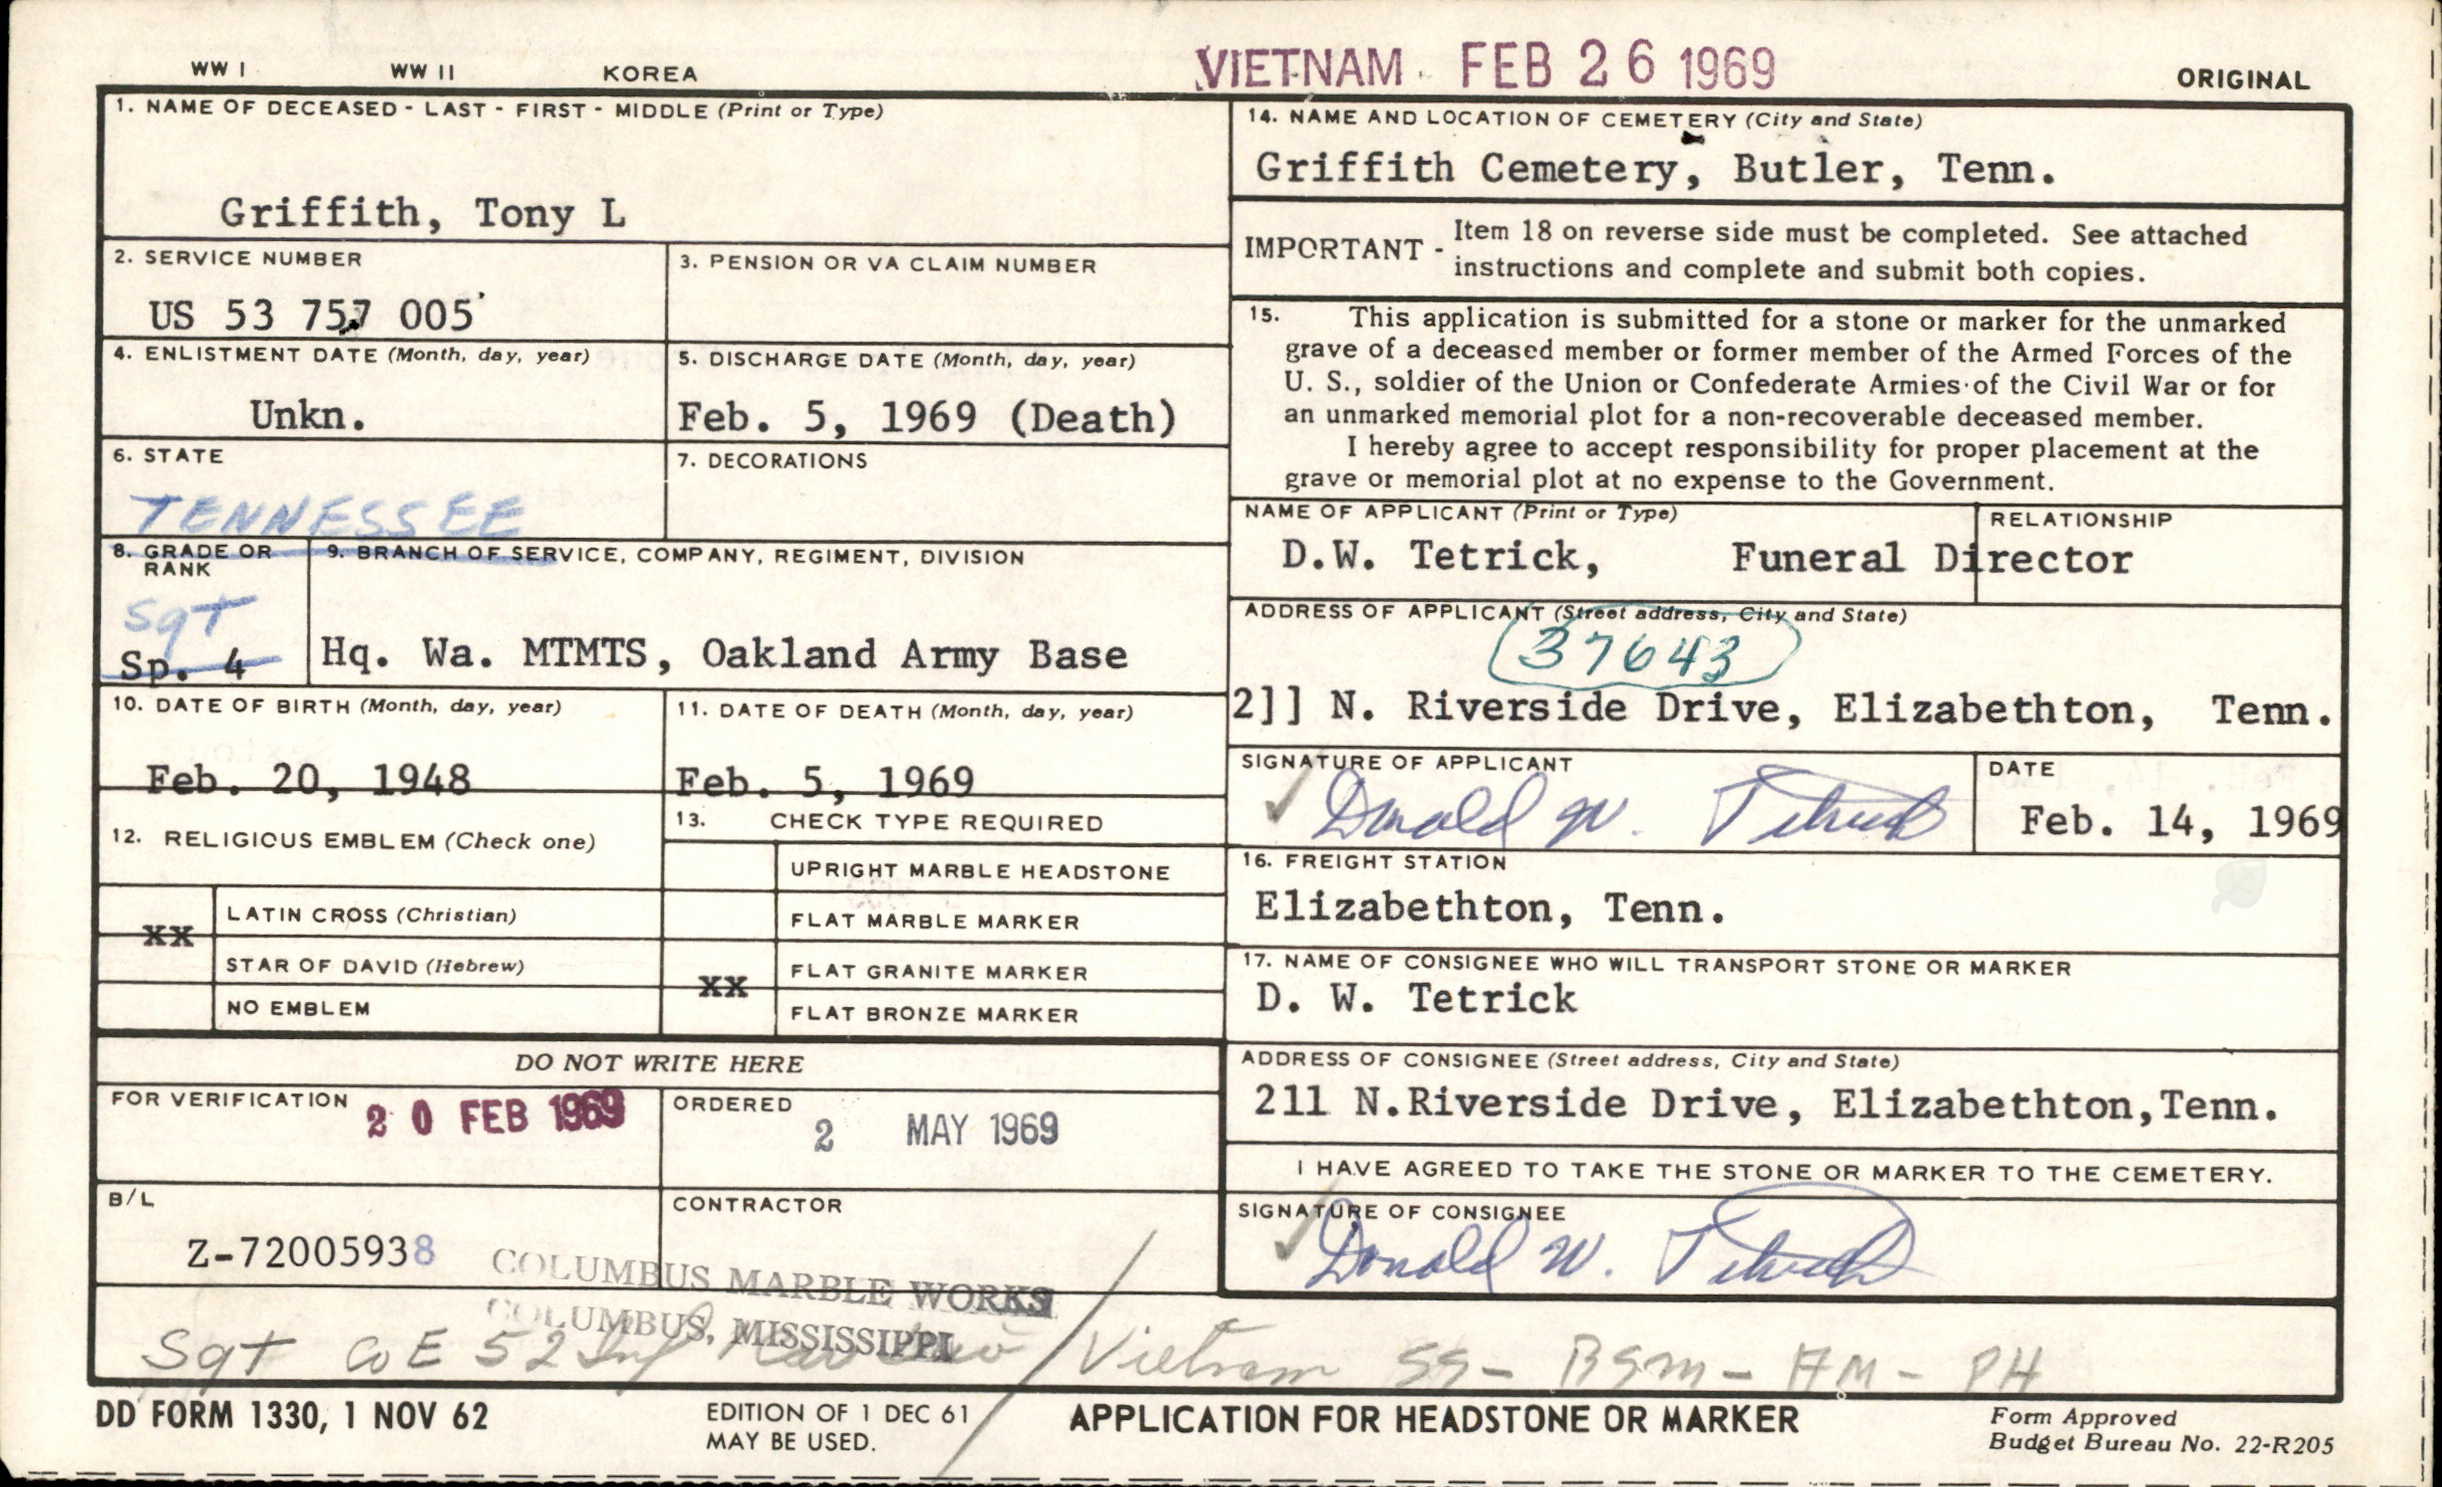 WW I WW II KOREA VIETNAM FEB 26 1969 ORIGINAL
1. NAME OF DECEASED - LAST - FIRST - MIDDLE (Print or Type)
Griffith, Tony L
2. SERVICE NUMBER
US 53 757 005
3. PENSION OR VA CLAIM NUMBER
4. ENLISTMENT DATE (Month, day, year)
Unkn.
5. DISCHARGE DATE (Month, day, year)
Feb. 5, 1969 (Death)
6. STATE
TENNESSEE
7. DECORATIONS
8. GRADE OR
RANK
Sgt
Sp. 4
9. BRANCH OF SERVICE, COMPANY, REGIMENT, DIVISION
Hq. Wa. MTMTS, Oakland Army Base
10. DATE OF BIRTH (Month, day, year)
Feb. 20, 1948
11. DATE OF DEATH (Month, day, year)
Feb. 5, 1969
12. RELIGIOUS EMBLEM (Check one)
xx LATIN CROSS (Christian)
STAR OF DAVID (Hebrew)
NO EMBLEM
13. CHECK TYPE REQUIRED
UPRIGHT MARBLE HEADSTONE
FLAT MARBLE MARKER
xx FLAT GRANITE MARKER
FLAT BRONZE MARKER
DO NOT WRITE HERE
FOR VERIFICATION
20 FEB 1969
ORDERED
2 MAY 1969
B/L
Z-72005938
CONTRACTOR
COLUMBUS MARBLE WORKS
COLUMBUS, MISSISSIPPI
14. NAME AND LOCATION OF CEMETERY (City and State)
Griffith Cemetery, Butler, Tenn.
IMPORTANT - Item 18 on reverse side must be completed. See attached
instructions and complete and submit both copies.
15. This application is submitted for a stone or marker for the unmarked
grave of a deceased member or former member of the Armed Forces of the
U. S., soldier of the Union or Confederate Armies of the Civil War or for
an unmarked memorial plot for a non-recoverable deceased member.
I hereby agree to accept responsibility for proper placement at the
grave or memorial plot at no expense to the Government.
NAME OF APPLICANT (Print or Type) RELATIONSHIP
D.W. Tetrick, Funeral Director
ADDRESS OF APPLICANT (Street address, City and State)
37643
2]] N. Riverside Drive, Elizabethton, Tenn.
SIGNATURE OF APPLICANT
Donald W. Tetrick
DATE
Feb. 14, 1969
16. FREIGHT STATION
Elizabethton, Tenn.
17. NAME OF CONSIGNEE WHO WILL TRANSPORT STONE OR MARKER
D. W. Tetrick
ADDRESS OF CONSIGNEE (Street address, City and State)
211 N.Riverside Drive, Elizabethton,Tenn.
I HAVE AGREED TO TAKE THE STONE OR MARKER TO THE CEMETERY.
SIGNATURE OF CONSIGNEE
Donald W. Tetrick
Sgt Co E 52 Inf / Vietnam SS - BSM - AM - PH
DD FORM 1330, 1 NOV 62
EDITION OF 1 DEC 61
MAY BE USED.
APPLICATION FOR HEADSTONE OR MARKER
Form Approved
Budget Bureau No. 22-R205